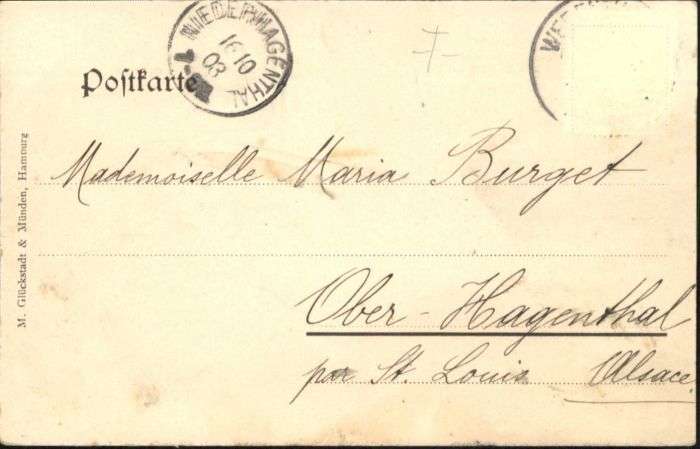 NIEDERHAGENTHAL
16 10
03
7-8
Postkarte
Mademoiselle Maria Burget
Ober-Hagenthal
par St. Louis Alsace.
M. Glückstadt & Münden, Hamburg